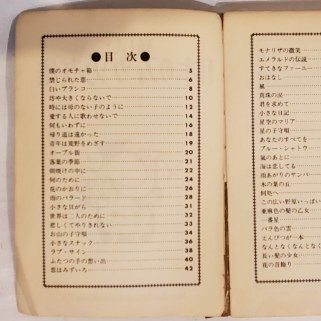 ●目次●
僕のオモチャ箱 5
禁じられた恋 6
白いブランコ 8
坊や大きくならないで 10
時には母のない子のように 12
愛する人に歌わせないで 14
何もいわずに 16
帰り道は遠かった 18
青年は荒野をめざす 19
オーブル街 20
落葉の季節 21
朝焼けの中に 22
何のために 24
花のかおりに 26
雨のバラード 28
小さな貝がら 30
世界は二人のために 32
悲しくてやりきれない 33
お山の子守唄 34
小さなスナック 36
ラブ・サイン 38
ふたつの手の想い出 40
恋はみずいろ 42
モナリザの微笑
エメラルドの伝説
すてきなファーニー
おはなし
風
真珠の涙
君を求めて
小さな日記
星空のマリア
星の子守唄
あなたのすべてを
ブルー・シャトウ
嵐のあとに
海は恋してる
雨あがりのサンバ
木の葉の丘
何処へ
この広い野原いっぱい
亜麻色の髪の乙女
一番星
バラ色の雲
えんぴつが一本
なんとなくなんとなく
長い髪の少女
花の首飾り